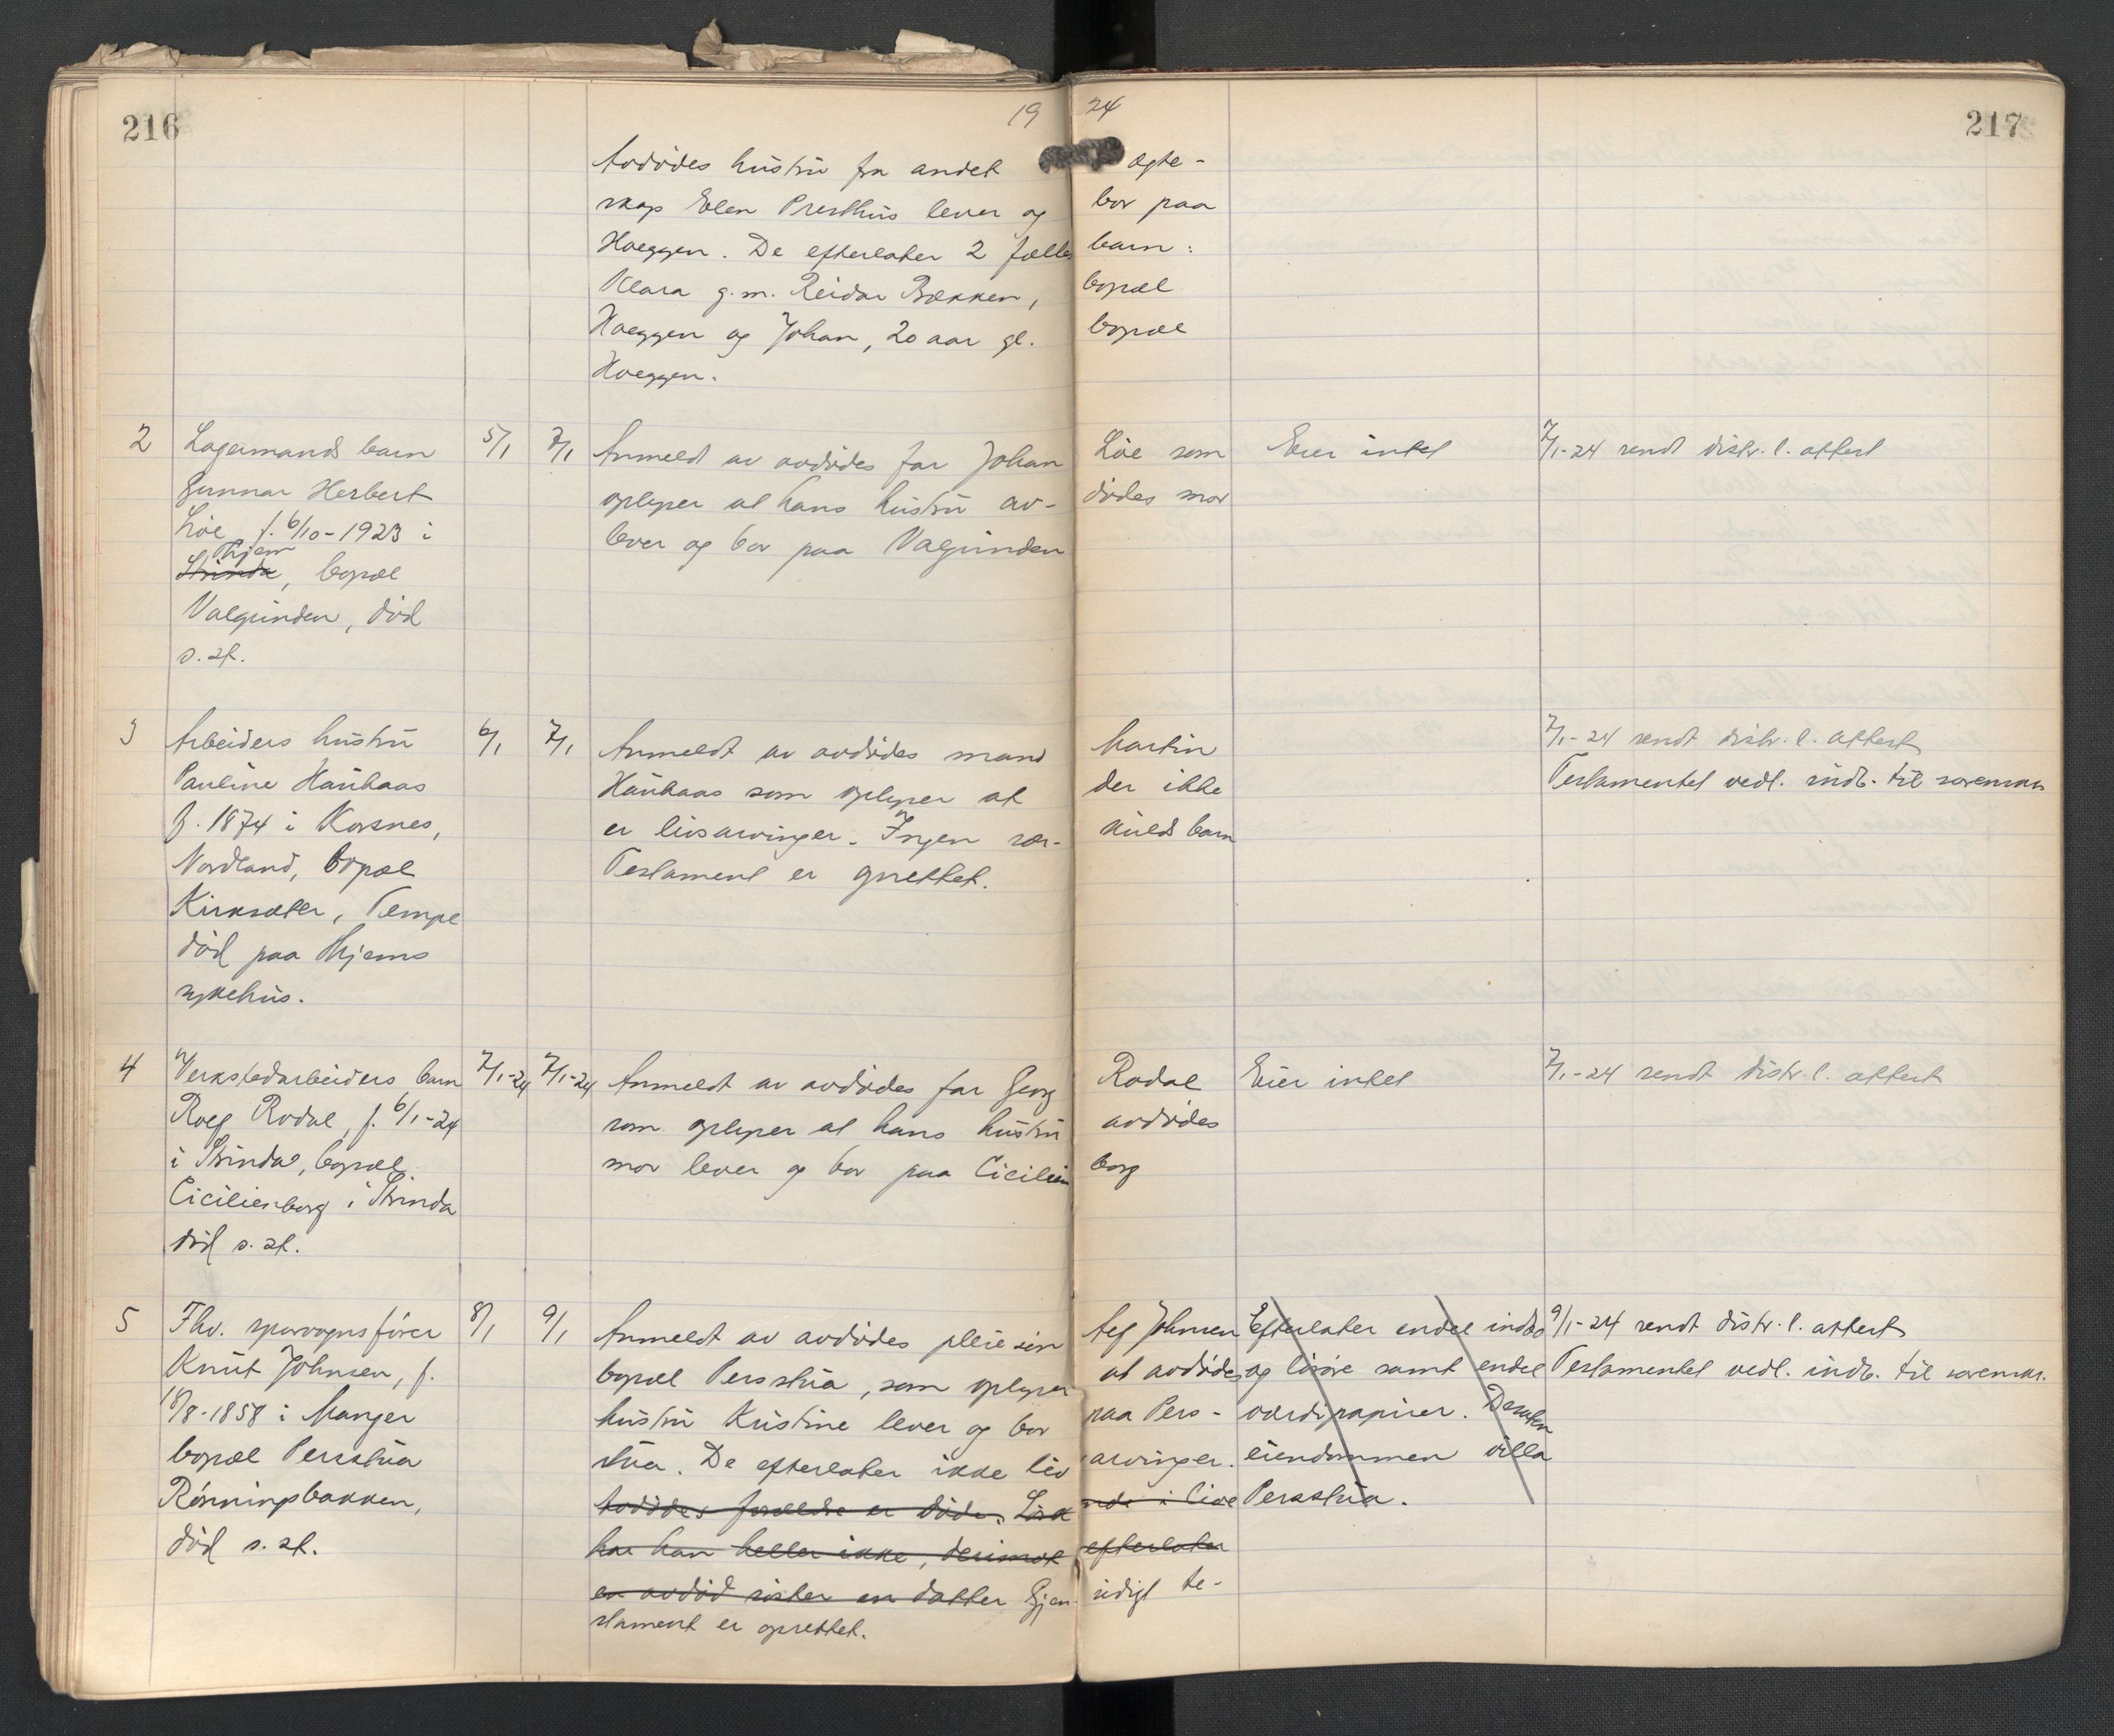 216
1924
217
Avdødes hustru fra andet ægte-
skap Elen Presthus lever og bor paa
Hoeggen. De efterlater 2 fælles barn:
Klara g.m. Reidar Bækken, bopæl
Hoeggen og Johan, 20 aar gl. bopæl
Hoeggen.
2 Lagermands barn 5/1 7/1 Anmeldt av avdødes far Johan Löe som Eier intet 7/1-24 sendt distr. l. attest
Gunnar Herbert oplyser at hans hustru av-dødes mor
Löe, f. 6/10-1923 i lever og bor paa Valgrinden
Thjem
Strinda, bopæl
Valgrinden, død
s. st.
3 Arbeiders hustru 6/1 7/1 Anmeldt av avdødes mand Martin 7/1-24 sendt distr. l. attest
Pauline Hanhaas Hanhaas som oplyser at der ikke Testamentet vedl. indb. til sorenskr.
f. 1874 i Korsnes, er livsarvinger. Ingen sær-kulds barn
Nordland, bopæl Testament er oprettet.
Kirksæter, Tempe
død paa Thjems
sykehus.
4 Verkstedarbeiders barn 7/1-24 7/1-24 Anmeldt av avdødes far Georg Rodal Eier intet 7/1-24 sendt distr. l. attest
Rolf Rodal, f. 6/1-24 som oplyser at hans hustru avdødes
i Strinda, bopæl mor lever og bor paa Cicilienborg
Cicilienborg i Strinda
død s. st.
5 Fhv. sporvognsfører 8/1 9/1 Anmeldt av avdødes pleiesøn Alf Johnsen Efterlater endel indbo 9/1-24 sendt distr. l. attest
Knut Johnsen, f. bopæl Persstua, som oplyser at avdødes og løsøre samt endel Testamentet vedl. indb. til sorenskr.
18/8-1858 i Manger hustru Kristine lever og bor paa Pers- værdipapirer. Desuten
bopæl Persstua stua. De efterlater ikke livsarvinger. eiendommen villa
Rønningsbakken, Avdødes forældre er døde. Søskende i live Persstua.
død s. st. har han heller ikke, derimot efterlater
en avdød søster en datter Gjensidigt te-
stament er oprettet.